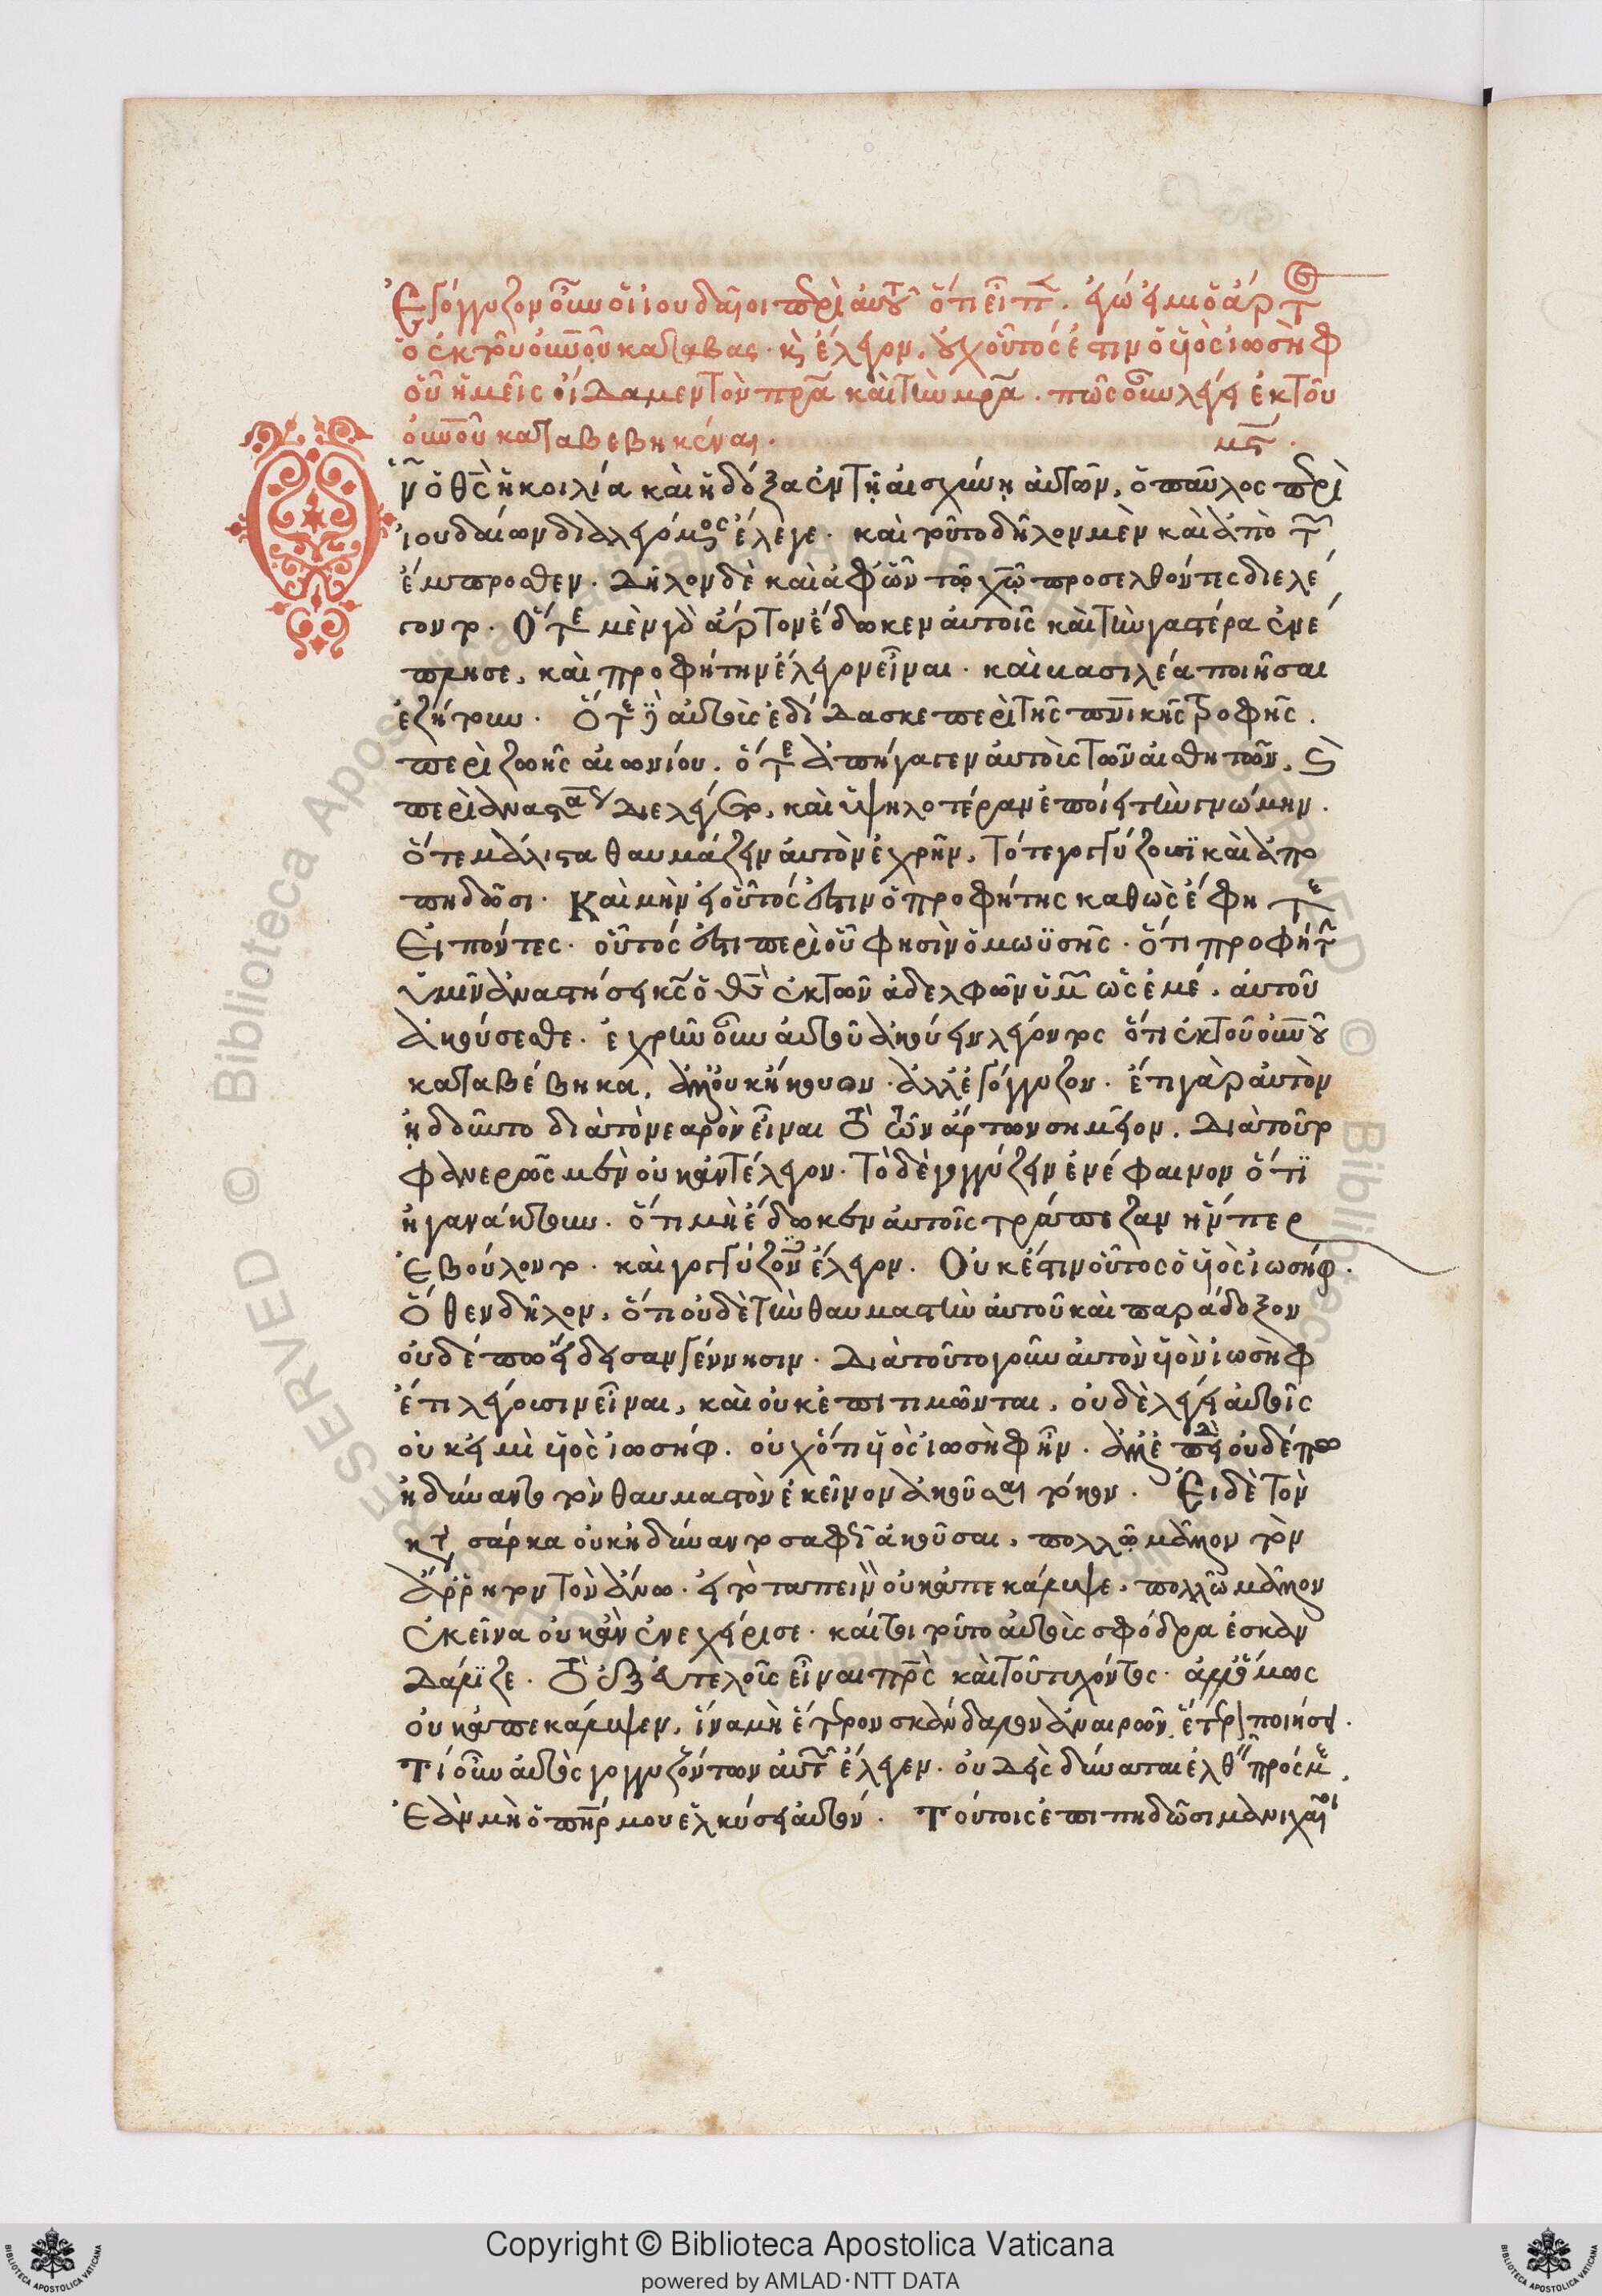 Ἐγόγγυζον οὖν οἱ ἰουδαῖοι περὶ αὐτοῦ ὅτι εἶπεν. ἐγώ εἰμι ὁ ἄρτος
ὁ ἐκ τοῦ οὐνοῦ καταβας. κ ἔλεγον, οὐχ οὗτός ἐστιν ὁ υἱὸς ἰωσὴφ
οὗ ἡμεῖς οἴδαμεν τὸν πρα καὶ τὴν μρα. πῶς οὖν λέγει ἐκ τοῦ
οὐνοῦ καταβεβηκέναι. μς.
ν ὁ θς ἡ κοιλία καὶ ἡ δόξα ἐν τῇ αἰσχύνῃ αὐτῶν, ὁ παῦλος περὶ
ἰουδαίων διαλεγόμενος ἔλεγε. καὶ τοῦτο δῆλον μὲν καὶ ἀπὸ τῶν
ἔμπροσθεν. Δῆλον δὲ καὶ ἀφ' ὧν τῷ χῷ προσελθόντες διελέ
γοντο. Ὅτε μὲν γὰρ ἄρτον ἔδωκεν αὐτοῖς καὶ τὴν γαστέρα ἐνέ
πλησε, καὶ προφήτην ἔλεγον εἶναι. καὶ βασιλέα ποιῆσαι
ἐζήτουν. Ὅτε δὲ αὐτοὺς ἐδίδασκε περὶ τῆς πνικῆς τροφῆς.
περὶ ζωῆς αἰωνίου. ὅτε ἀπήγαγεν αὐτοὺς τῶν αἰσθητῶν,
περὶ ἀναστάσεως διελέγετο, καὶ ὑψηλοτέραν ἐποίει τὴν γνώμην.
ὅτε μάλιστα θαυμάζειν αὐτὸν ἐχρῆν, Τότε γογγύζουσι καὶ ἀπο
πηδῶσι. Καὶ μὴν εἰ οὗτός ἐστιν ὁ προφήτης καθὼς ἔφη τε
Εἰπόντες. οὗτός ἐστι περὶ οὗ φησὶν ὁ μωϋσῆς. ὅτι προφήτην
ὑμῖν ἀναστήσει κς ὁ θς ἐκ τῶν ἀδελφῶν ὑμῶν ὡς ἐμέ. αὐτοῦ
ἀκούσεσθε. ἐχρῆν οὖν αὐτοῦ ἀκούειν λέγοντος ὅτι ἐκ τοῦ οὐνοῦ
καταβέβηκα, ἀλλ' οὐκ ἤκουον. ἀλλ' ἐγόγγυζον. ἔτι γὰρ αὐτὸν
ᾐδοῦντο διὰ τὸ νεαρὸν εἶναι τὸ τῶν ἄρτων σημεῖον. Διὰ τοῦτο
φανερῶς μὲν οὐκ ἀντέλεγον. Τὸ δὲ γογγύζειν ἐνέφαινον ὅτι
ἠγανάκτουν. ὅτι μὴ ἔδωκεν αὐτοῖς τράπεζαν ἥνπερ
Ἐβούλοντο. καὶ γογγύζοντες ἔλεγον. Οὐκ ἔστιν οὗτος ὁ υἱὸς ἰωσήφ.
Ὅθεν δῆλον, ὅτι οὐδὲ τὴν θαυμαστὴν αὐτοῦ καὶ παράδοξον
οὐδέπω ᾔδεσαν γέννησιν. Διὰ τοῦτο γοῦν αὐτὸν υἱὸν ἰωσὴφ
ἔτι λέγουσιν εἶναι, καὶ οὐκ ἐπιτιμῶνται, οὐδὲ λέγει αὐτοῖς
οὐκ εἰμὶ υἱὸς ἰωσήφ. οὐχ ὅτι υἱὸς ἰωσὴφ ἦν. ἀλλ' ἐπεὶ οὐδέπω
ἠδύναντο τὸν θαυμαστὸν ἐκεῖνον ἀκοῦσαι τόκον. Εἰ δὲ τὸν
κατὰ σάρκα οὐκ ἠδύναντο σαφῶς ἀκοῦσαι, πολλῷ μᾶλλον τὸν
ἄρρητον τὸν ἄνω. εἰ τὸ ταπεινὸν οὐκ ἀπεκάλυψε, πολλῷ μᾶλλον
Ἐκεῖνα οὐκ ἂν ἐνεχείρισε. καίτοι τοῦτο αὐτοὺς σφόδρα ἐσκαν
Δάλιζε. Τὸ ἐξ εὐτελοῦς εἶναι πρς καὶ τοῦ τυχόντος. ἀλλ' ὅμως
οὐκ ἀπεκάλυψεν, ἵνα μὴ ἕτερον σκάνδαλον ἀναιρῶν, ἕτερον ποιήσῃ.
Τί οὖν αὐτὸς γογγυζόντων αὐτῶν ἔλεγεν. οὐδεὶς δύναται ἐλθεῖν πρός με,
Ἐὰν μὴ ὁ πηρ μου ἑλκύσῃ αὐτόν. Τούτοις ἐπιπηδῶσι μανιχαῖοι
Copyright © Biblioteca Apostolica Vaticana
powered by AMLAD·NTT DATA